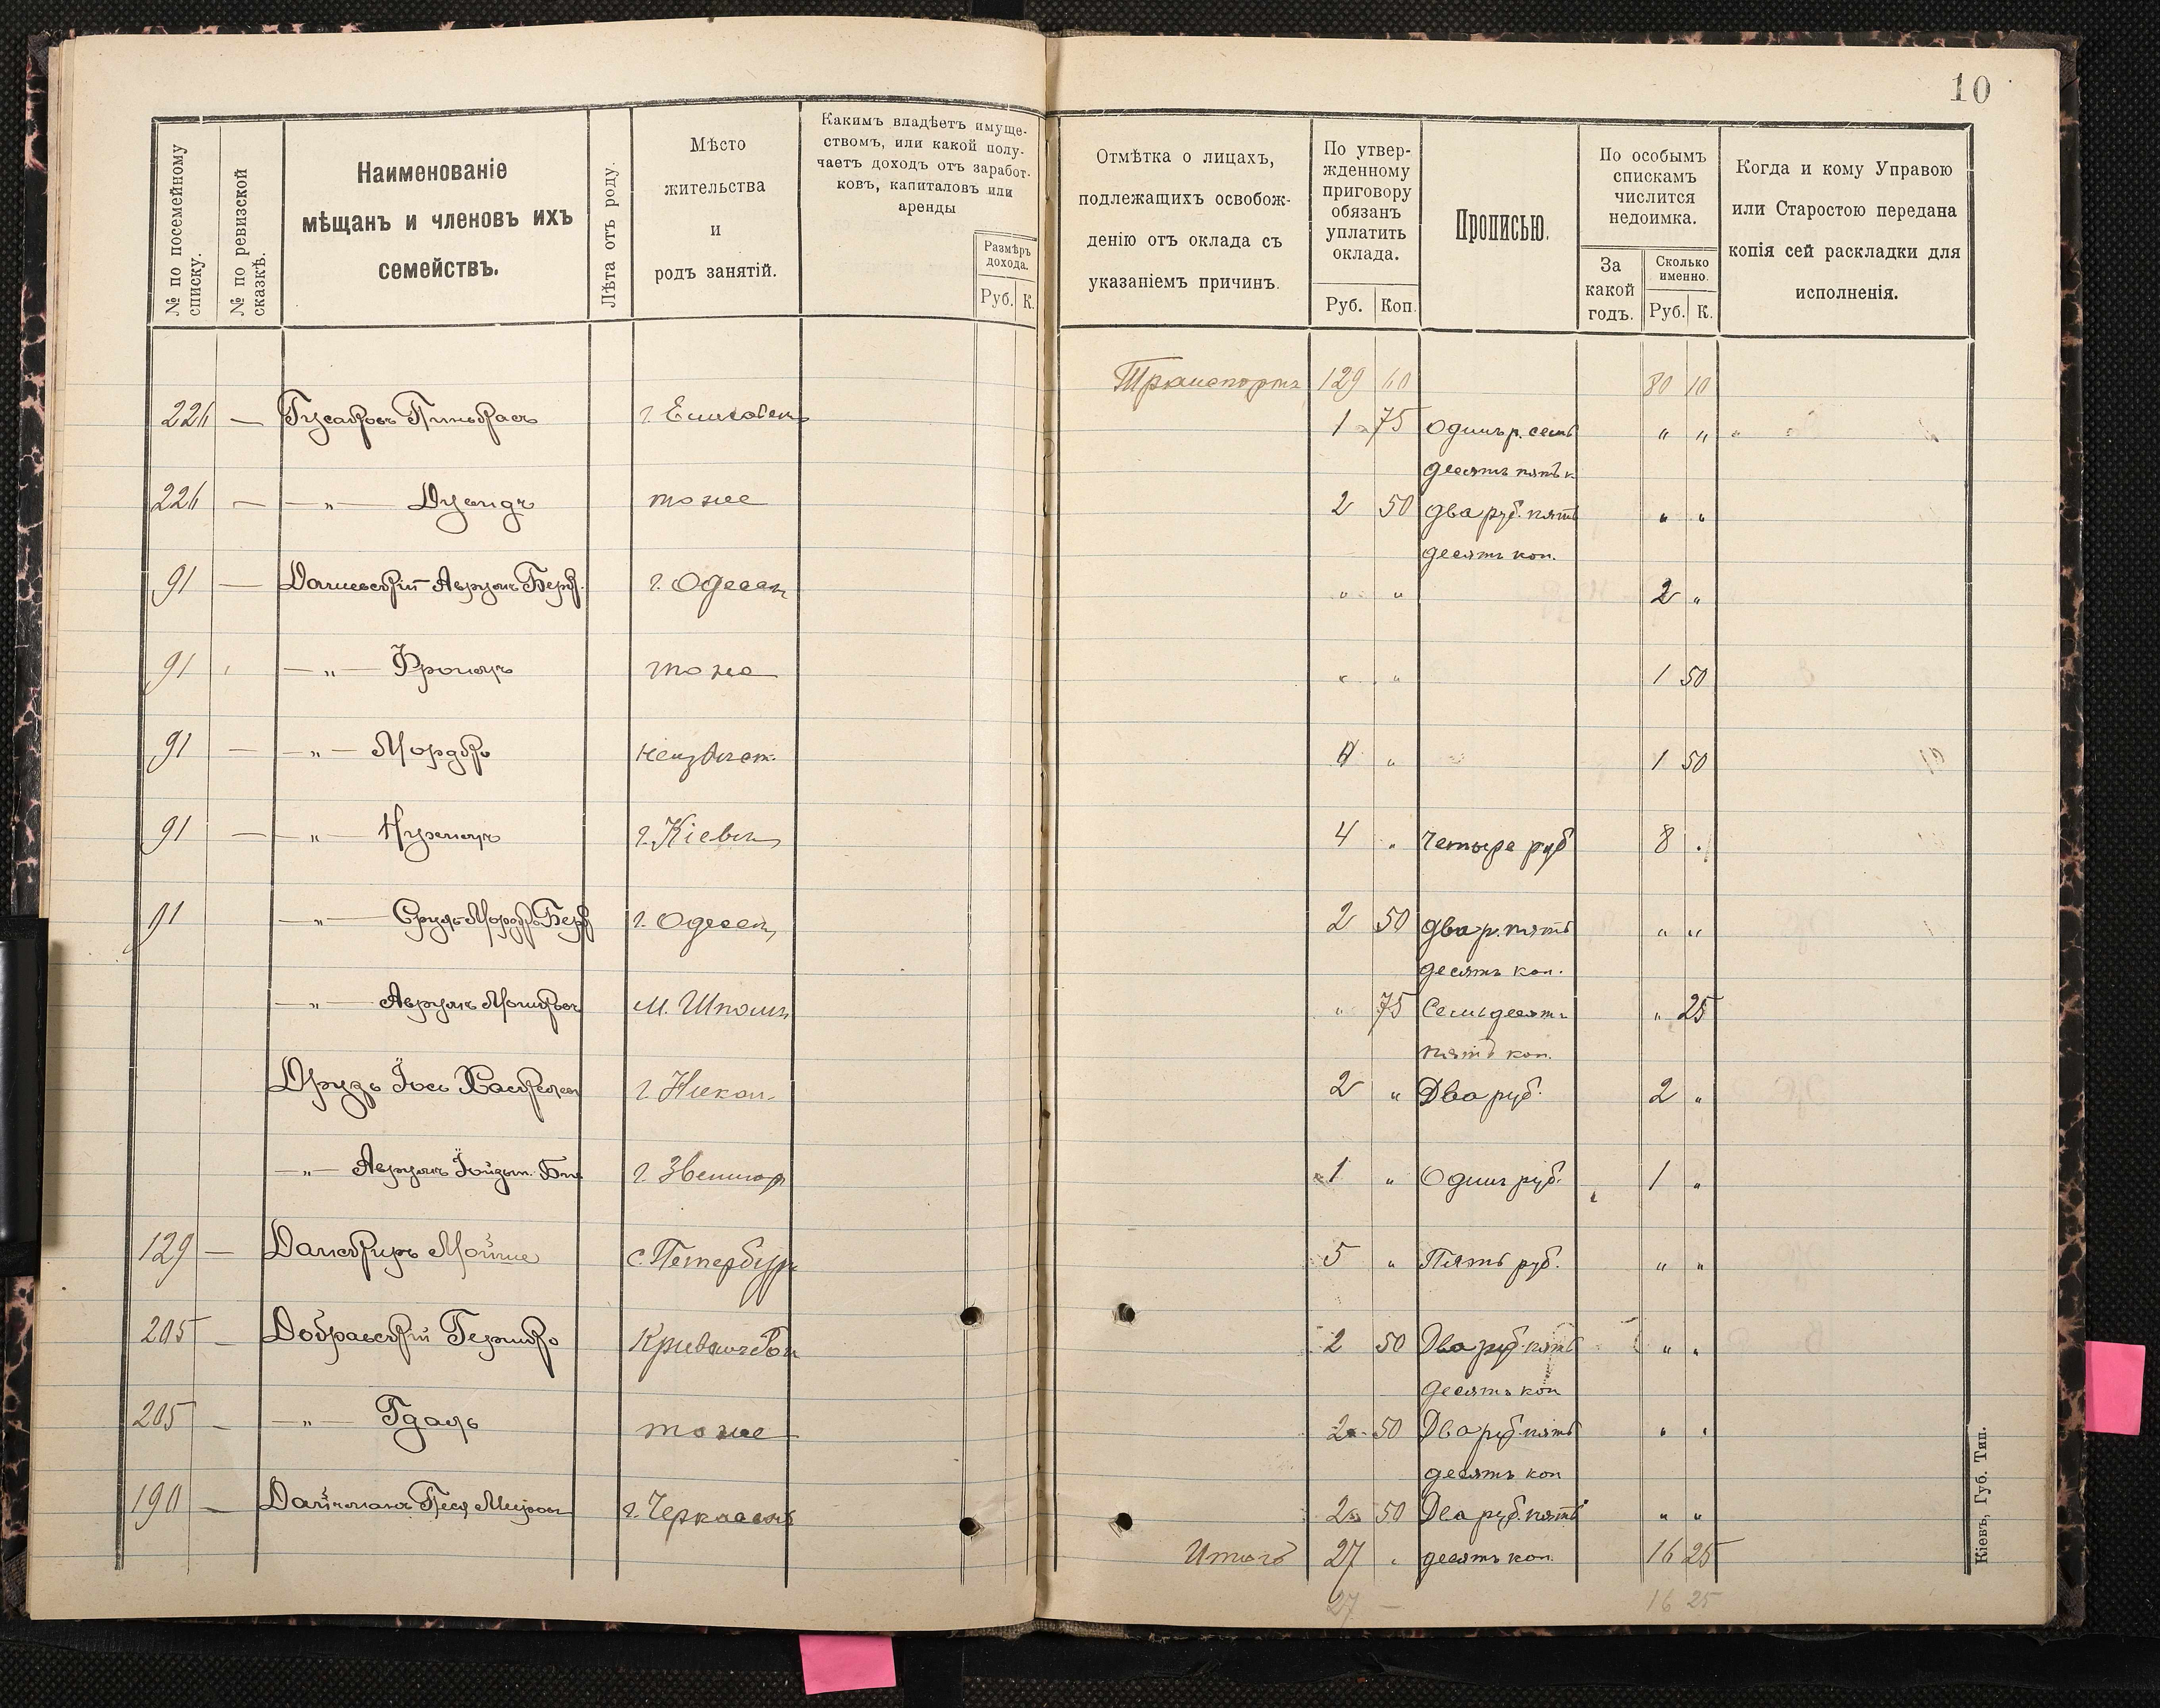 10
№ по посемейному списку.
№ по ревизской сказкѣ.
Наименованіе
мѣщанъ и членовъ ихъ
семействъ.
Лѣта отъ роду.
Мѣсто
жительства
и
родъ занятій.
Какимъ владѣетъ имуще-
ствомъ, или какой полу-
чаетъ доходъ отъ заработ-
ковъ, капиталовъ или
аренды
Размѣръ
дохода.
Руб. К.
Отмѣтка о лицахъ,
подлежащихъ освобож-
денію отъ оклада съ
указаніемъ причинъ.
По утвер-
жденному
приговору
обязанъ
уплатить
оклада.
Руб. Коп.
Прописью.
По особымъ
спискамъ
числится
недоимка.
За
какой
годъ.
Сколько
именно.
Руб. К.
Когда и кому Управою
или Старостою передана
копія сей раскладки для
исполненія.
Транспортъ 129 60 80 10
226 — Гусаковъ Пинькасъ 1 75 Одинъ р. семь " "
десять пять к.
226 — — " — тоже 2 50 два руб. пять " "
десять коп.
91 — Аврумъ Берк. г. Одесса " " 2 "
91 — " — Фроимъ тоже " " 1 50
91 — — " — Мордко неизвѣст. " " 1 50
91 — — " — Нухимъ г. Кіевъ 4 " Четыре руб 8 "
91 — " — Сруль Мордко Берк г. Одесса 2 50 два р. пять " "
десять коп.
— " — Аврумъ Мошков м. Шпола " 75 Семьдесять " 25
пять коп.
Друзь Іось г. Никол. 2 " Два руб. 2 "
— " — Аврумъ г. Звенигор 1 " Одинъ руб. 1 "
129 — Мойше С. Петербург 5 " Пять руб. " "
205 — Добравскій Гершко 2 50 Два руб. пять " "
десять коп
205 — — " — Гдаль тоже 2 50 Два руб. пять " "
десять коп
190 — г. Черкассы 2 50 Два руб. пять " "
Итого 27 " десять коп. 16 25
27 — 16 25
Кіевъ, Губ. Тип.